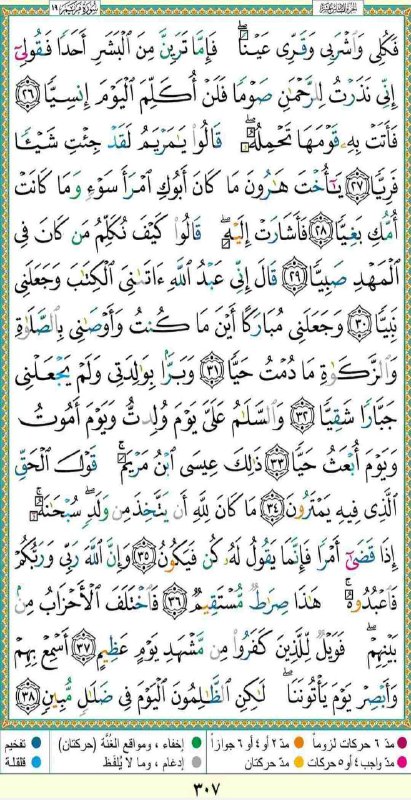 سُورَةُ مَرْيَمَ ١٩
فَكُلِى وَٱشْرَبِى وَقَرِّى عَيْنًاۖ فَإِمَّا تَرَيِنَّ مِنَ ٱلْبَشَرِ أَحَدًا فَقُولِىٓ
إِنِّى نَذَرْتُ لِلرَّحْمَٰنِ صَوْمًا فَلَنْ أُكَلِّمَ ٱلْيَوْمَ إِنسِيًّا ٢٦
فَأَتَتْ بِهِۦ قَوْمَهَا تَحْمِلُهُۥۖ قَالُوا۟ يَٰمَرْيَمُ لَقَدْ جِئْتِ شَيْـًٔا
فَرِيًّا ٢٧ يَٰٓأُخْتَ هَٰرُونَ مَا كَانَ أَبُوكِ ٱمْرَأَ سَوْءٍ وَمَا كَانَتْ
أُمُّكِ بَغِيًّا ٢٨ فَأَشَارَتْ إِلَيْهِۖ قَالُوا۟ كَيْفَ نُكَلِّمُ مَن كَانَ فِى
ٱلْمَهْدِ صَبِيًّا ٢٩ قَالَ إِنِّى عَبْدُ ٱللَّهِ ءَاتَىٰنِىَ ٱلْكِتَٰبَ وَجَعَلَنِى
نَبِيًّا ٣٠ وَجَعَلَنِى مُبَارَكًا أَيْنَ مَا كُنتُ وَأَوْصَٰنِى بِٱلصَّلَوٰةِ
وَٱلزَّكَوٰةِ مَا دُمْتُ حَيًّا ٣١ وَبَرًّۢا بِوَٰلِدَتِى وَلَمْ يَجْعَلْنِى
جَبَّارًا شَقِيًّا ٣٢ وَٱلسَّلَٰمُ عَلَىَّ يَوْمَ وُلِدتُّ وَيَوْمَ أَمُوتُ
وَيَوْمَ أُبْعَثُ حَيًّا ٣٣ ذَٰلِكَ عِيسَى ٱبْنُ مَرْيَمَۚ قَوْلَ ٱلْحَقِّ
ٱلَّذِى فِيهِ يَمْتَرُونَ ٣٤ مَا كَانَ لِلَّهِ أَن يَتَّخِذَ مِن وَلَدٍۖ سُبْحَٰنَهُۥٓۚ
إِذَا قَضَىٰٓ أَمْرًا فَإِنَّمَا يَقُولُ لَهُۥ كُن فَيَكُونُ ٣٥ وَإِنَّ ٱللَّهَ رَبِّى وَرَبُّكُمْ
فَٱعْبُدُوهُۚ هَٰذَا صِرَٰطٌ مُّسْتَقِيمٌ ٣٦ فَٱخْتَلَفَ ٱلْأَحْزَابُ مِنۢ
بَيْنِهِمْۖ فَوَيْلٌ لِّلَّذِينَ كَفَرُوا۟ مِن مَّشْهَدِ يَوْمٍ عَظِيمٍ ٣٧ أَسْمِعْ بِهِمْ
وَأَبْصِرْ يَوْمَ يَأْتُونَنَاۖ لَٰكِنِ ٱلظَّٰلِمُونَ ٱلْيَوْمَ فِى ضَلَٰلٍ مُّبِينٍ ٣٨
مدّ ٦ حركات لزوماً مدّ ٢ أو ٤ أو ٦ جوازاً إخفاء ، ومواقع الغُنَّة (حركتان) تفخيم
مدّ واجب ٤ أو ٥ حركات مدّ حركتان إدغام ، وما لا يُلفَظ قلقلة
٣٠٧